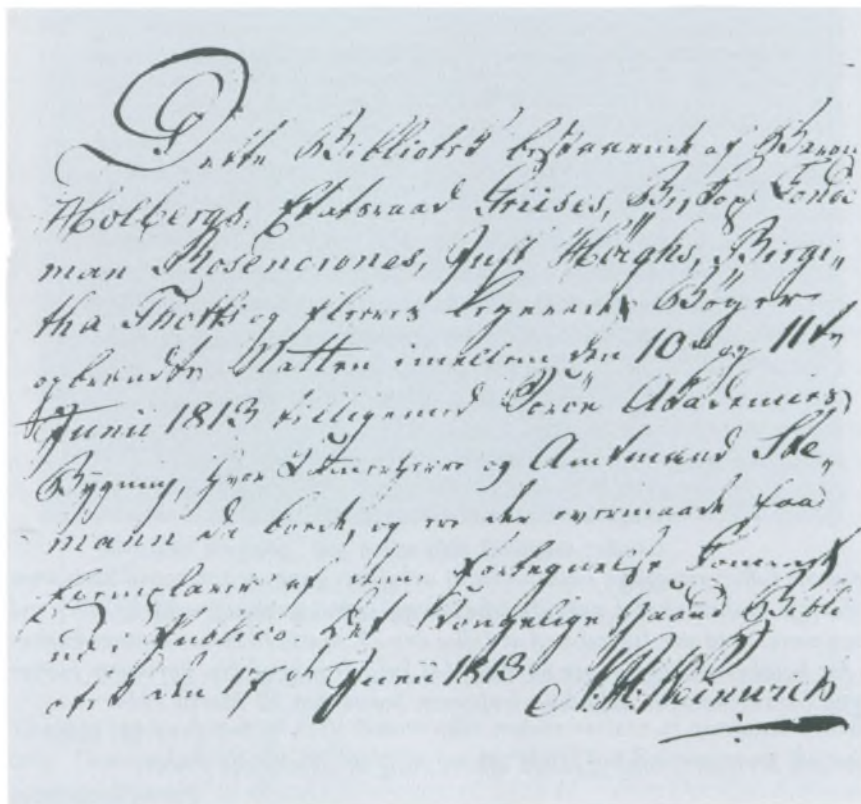 Dette Bibliotek bestaaende af Baron
Holbergs, Etatsraad Griises, Biskop
man Rosencrones, Just Høeghs, Birgi„
tha Thotts og fleeres legerede Bøger
opbrændte Natten imellem den 10de og 11te
Junii 1813 tilligemed Sorøe Academies
Bygning, hvor Kammerherre og Amtmand Ste„
mann da boede, og ere der overmaade faa
Exemplarer af denne Fortegnelse
Publico. Det Kongelige Haand Bibli
otek den 17de Junii 1813